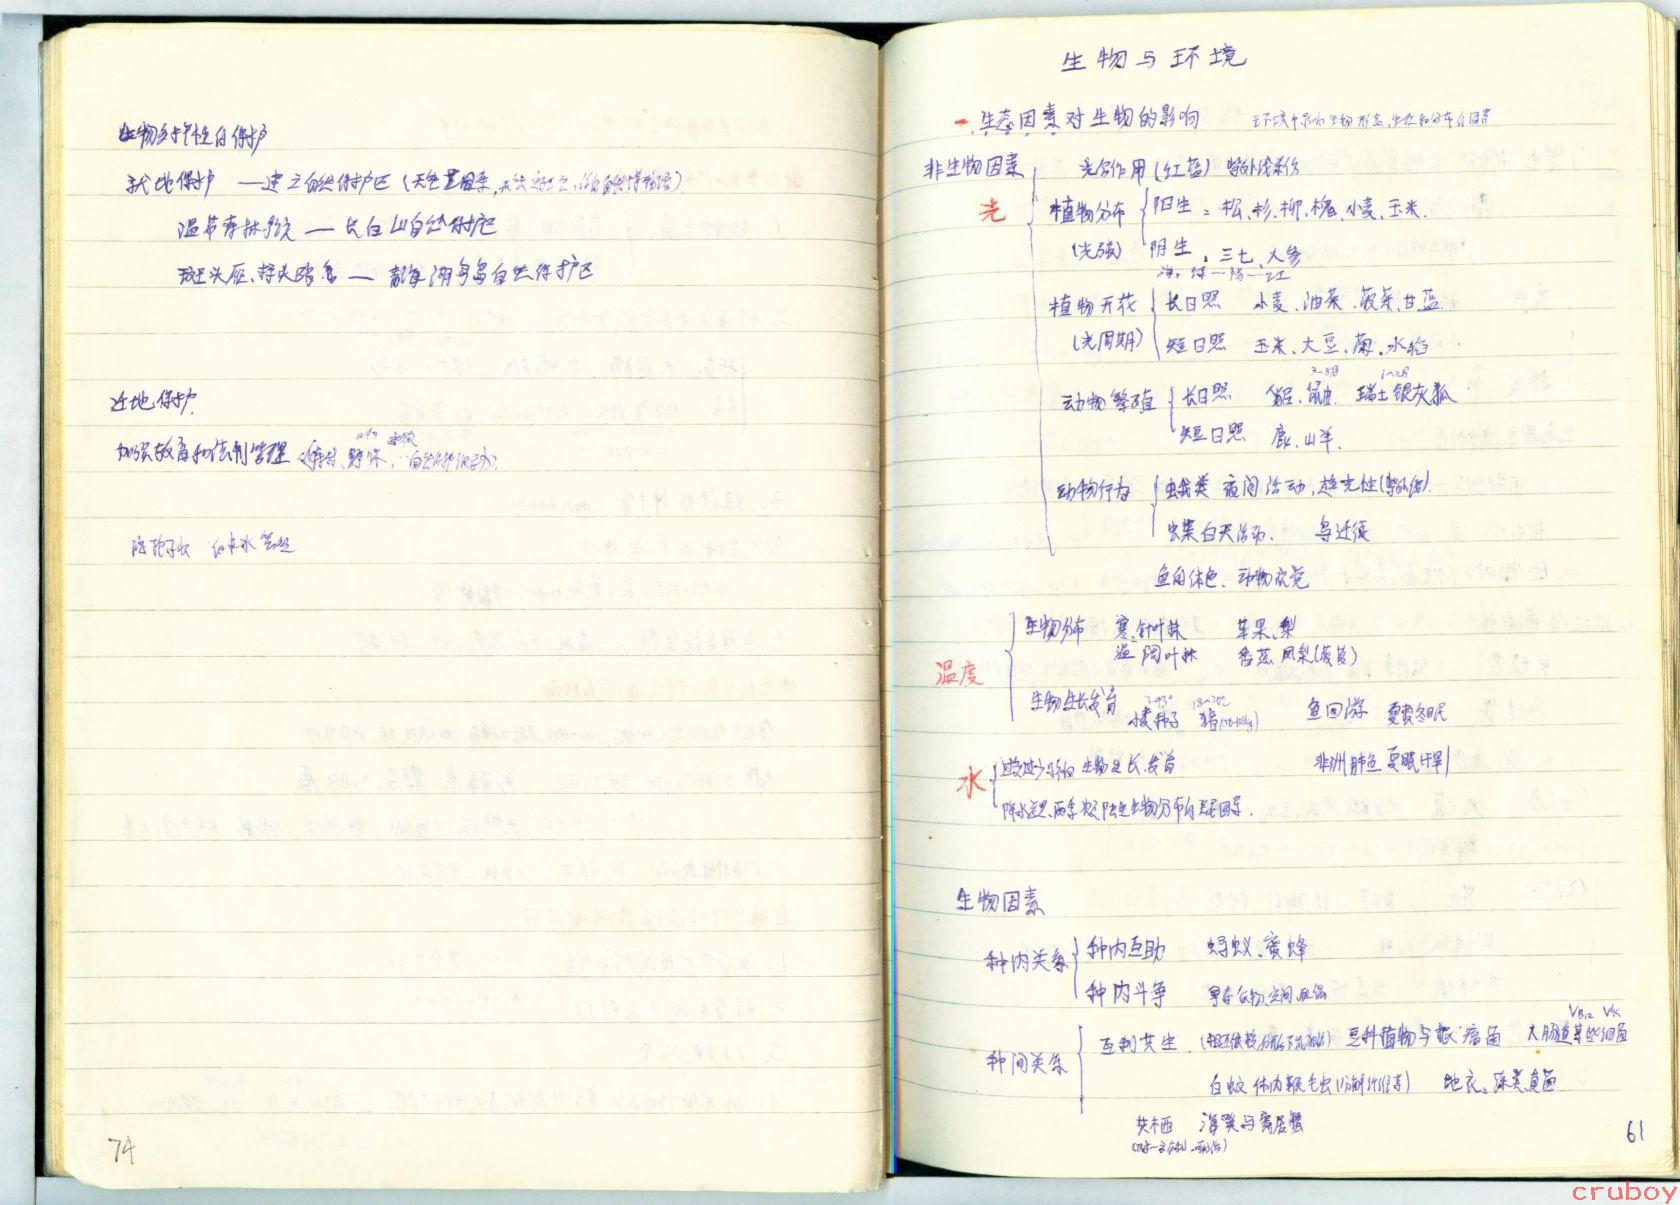 生物多样性的保护
就地保护 —建立自然保护区(天然基因库,天然实验室,
温带森林系统 — 长白山自然保护区
斑头雁、棕头鸥等 — 青海湖鸟岛自然保护区
迁地保护
加强教育和法制管理
74
生物与环境
一 生态因素对生物的影响 环境中影响生物形态、生理和分布的因素
非生物因素
光
光合作用(红蓝) 紫外线杀伤
植物分布(光强)
阳生:松、杉、柳、槐、小麦、玉米.
阴生:三七、人参
海:绿—褐—红
植物开花(光周期)
长日照 小麦、油菜、菠菜、甘蓝
短日照 玉米、大豆、菊、水稻
动物繁殖
长日照 貂、鼬 瑞士银灰狐
短日照 鹿、山羊.
动物行为
蛾类 夜间活动,趋光性(紫外线).
白天活动. 鸟迁徙
鱼的体色. 动物视觉
温度
生物分布 寒.针叶林 苹果、梨
温 阔叶林 香蕉 凤梨(菠萝)
生物生长发育 小麦种子 猪 鱼回游 冬眠
水
过多过少影响生物生长、发育 非洲肺鱼 夏眠
降水总量、雨季决定陆生生物分布的重要因素.
生物因素
种内关系
种内互助 蚂蚁、蜜蜂
种内斗争 争夺食物、空间、配偶
种间关系
互利共生.(相互依赖 豆科植物与根瘤菌 大肠道某些细菌
VB12 VK
白蚁 体内鞭毛虫(分解纤维素) 地衣:藻类真菌
共栖 海葵与寄居蟹
61
cruboy